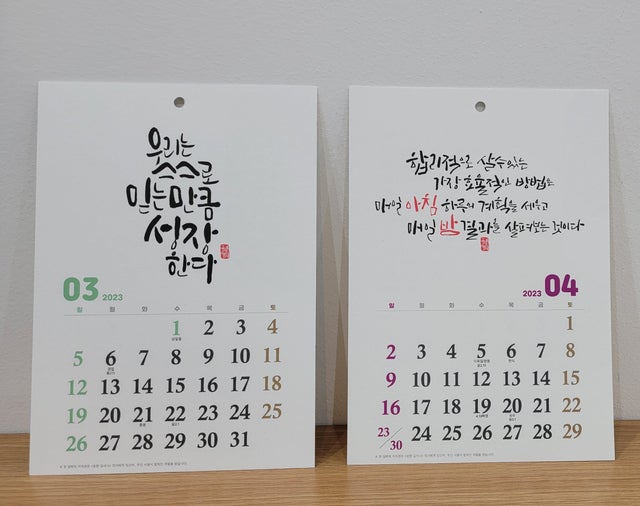 우리는
스스로
믿는만큼
성장
한다
03 2023
일 월 화 수 목 금 토
1 2 3 4
5 6 7 8 9 10 11
12 13 14 15 16 17 18
19 20 21 22 23 24 25
26 27 28 29 30 31
합리적으로 살수있는
가장 효율적인 방법은
매일 아침 하루의 계획을 세우고
매일 밤 결과를 살펴보는 것이다
2023 04
일 월 화 수 목 금 토
1
2 3 4 5 6 7 8
9 10 11 12 13 14 15
16 17 18 19 20 21 22
23/30 24 25 26 27 28 29